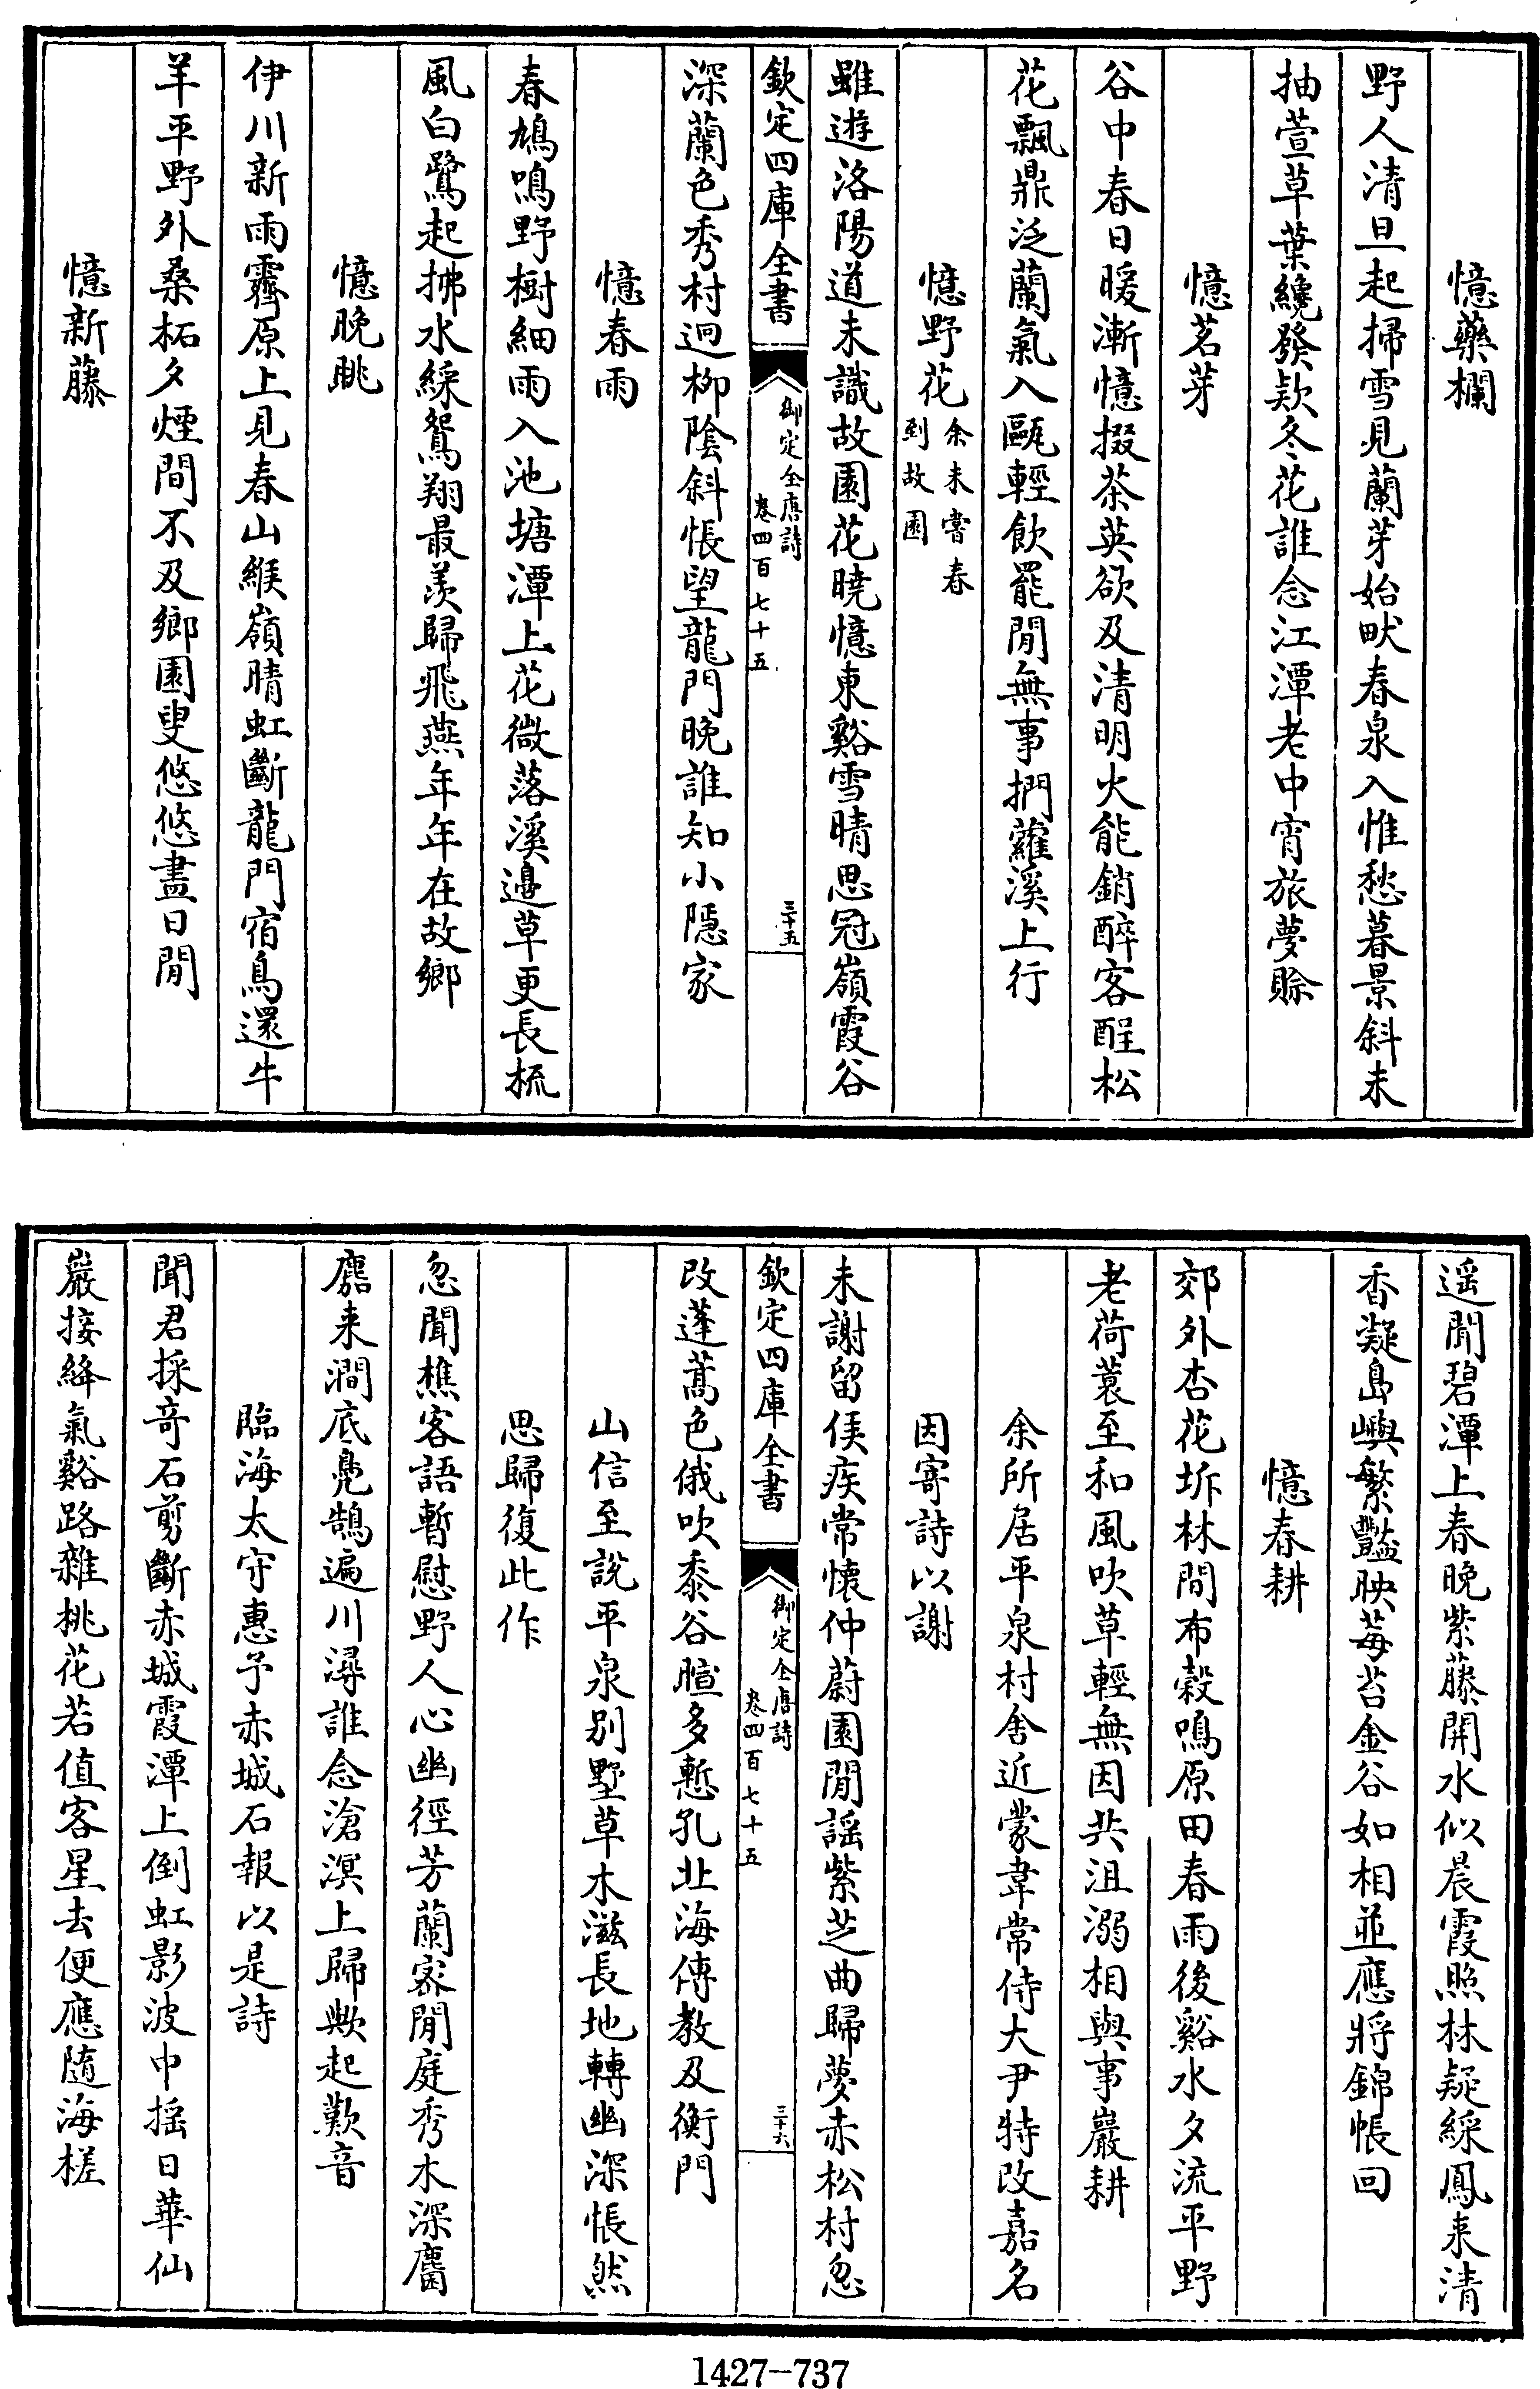 憶藥欄
野人清旦起掃雪見蘭芽始畎春泉入惟愁暮景斜未
抽萱草葉纔發欵冬花誰念江潭老中宵旅夢賒
憶茗芽
谷中春日暖漸憶掇茶英欲及清明火能銷醉客酲松
花飄鼎泛蘭氣入甌輕飲罷閒無事捫蘿溪上行
憶野花余未嘗春到故園
雖遊洛陽道未識故園花曉憶東谿雪晴思冠嶺霞谷
欽定四庫全書
御定全唐詩
卷四百七十五
三十五
深蘭色秀村迥柳陰斜悵望龍門晚誰知小隱家
憶春雨
春鳩鳴野樹細雨入池塘潭上花微落溪邊草更長梳
風白鷺起拂水綵鴛翔最羨歸飛燕年年在故鄉
憶晚眺
伊川新雨霽原上見春山緱嶺晴虹斷龍門宿鳥還牛
羊平野外桑柘夕煙間不及鄉園叟悠悠盡日閒
憶新藤
遥聞碧潭上春晚紫藤開水似晨霞照林疑綵鳳来清
香凝島嶼繁豔映莓苔金谷如相並應將錦帳回
憶春耕
郊外杏花坼林間布穀鳴原田春雨後谿水夕流平野
老荷蓑至和風吹草輕無因共沮溺相與事巖耕
余所居平泉村舍近蒙韋常侍大尹特改嘉名
因寄詩以謝
未謝留侯疾常懷仲蔚園閒謡紫芝曲歸夢赤松村忽
欽定四庫全書
御定全唐詩
卷四百七十五
三十六
改蓬蒿色俄吹黍谷暄多慙孔北海傳教及衡門
山信至說平泉别墅草木滋長地轉幽深悵然
思歸復此作
忽聞樵客語暫慰野人心幽徑芳蘭宻閒庭秀木深麕
麚来澗底鳧鵠遍川潯誰念滄溟上歸歟起歎音
臨海太守惠予赤城石報以是詩
聞君採奇石剪斷赤城霞潭上倒虹影波中揺日華仙
巖接絳氣谿路雜桃花若值客星去便應随海槎
1427-737